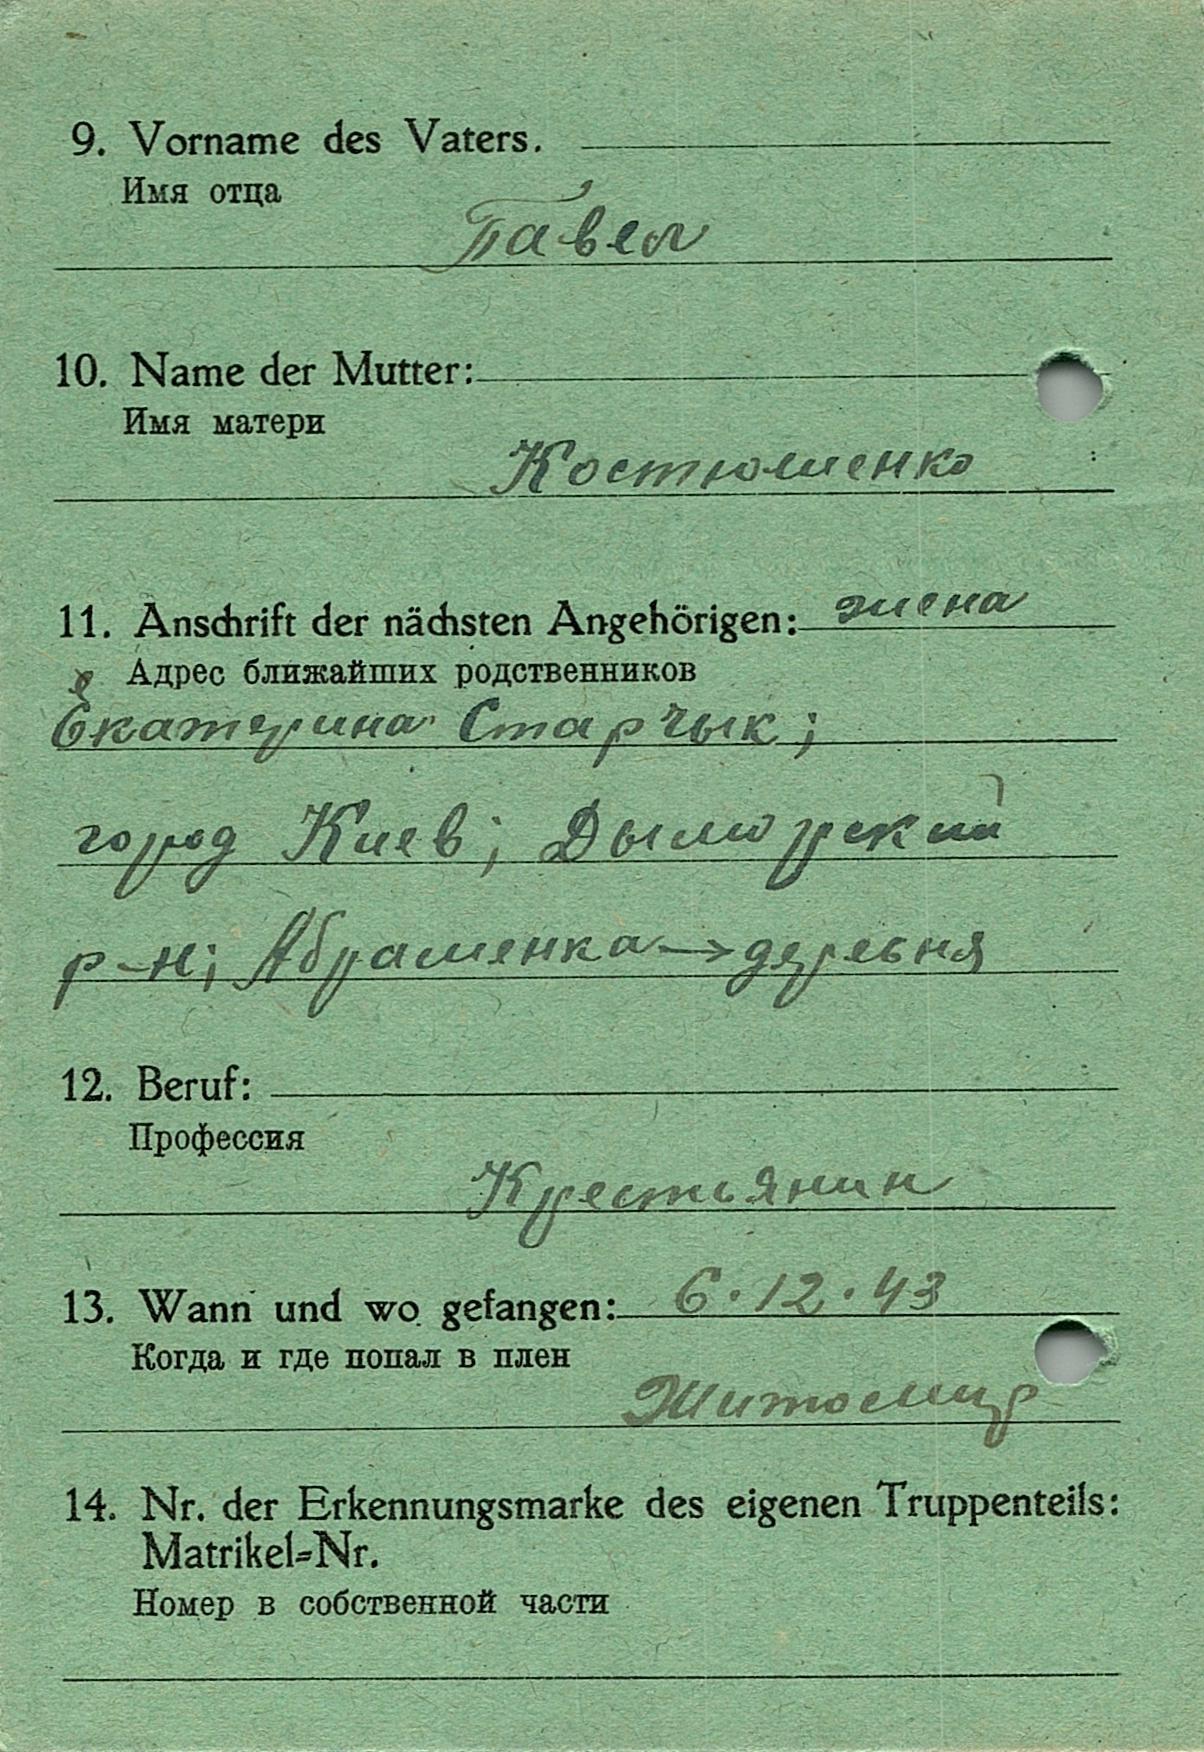 9. Vorname des Vaters.
Имя отца
Павел
10. Name der Mutter:
Имя матери
Костюменко
11. Anschrift der nächsten Angehörigen: жена
Адрес ближайших родственников
Екатерина Старчык;
город Киев; Дымерский
р-н; Абраменка → деревня
12. Beruf:
Профессия
Крестьянин
13. Wann und wo gefangen: 6.12.43
Когда и где попал в плен
Житомир
14. Nr. der Erkennungsmarke des eigenen Truppenteils:
Matrikel=Nr.
Номер в собственной части